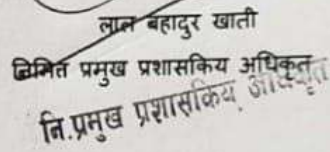 लाल बहादुर खाती
निमित्त प्रमुख प्रशासकिय अधिकृत
नि.प्रमुख प्रशासकिय अधिकृत